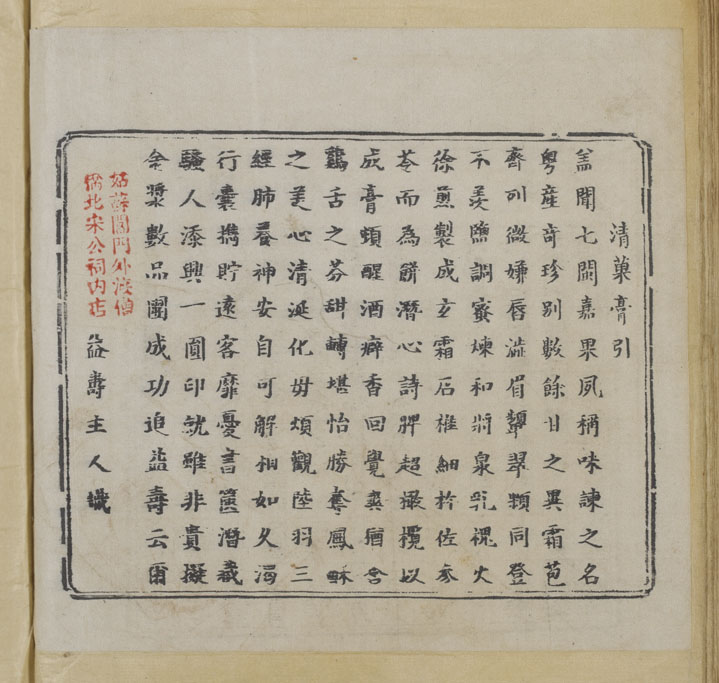 清菓膏引
盖聞七閩嘉果夙稱味諫之名
粤産竒珍别數餘甘之異霜苞
齊列微嫌唇澁眉顰翠顆同登
不羡鹽調蜜煉和將泉乳視火
徐煎製成玄霜石椎細杵佐参
苓而為餅潛心詩脾超橄欖以
成膏頓醒酒癖香回覺爽猶含
鷄舌之芬甜轉堪怡勝奪鳳酥
之美心清涎化毋煩觀陸羽三
經肺養神安自可解相如久渴
行囊携貯遠客靡憂書篋潛藏
騷人添興一圓印就雖非貴擬
金漿數品團成功追益壽云爾
益壽主人識
姑蘇閶門外渡僧
橋北宋公祠内店